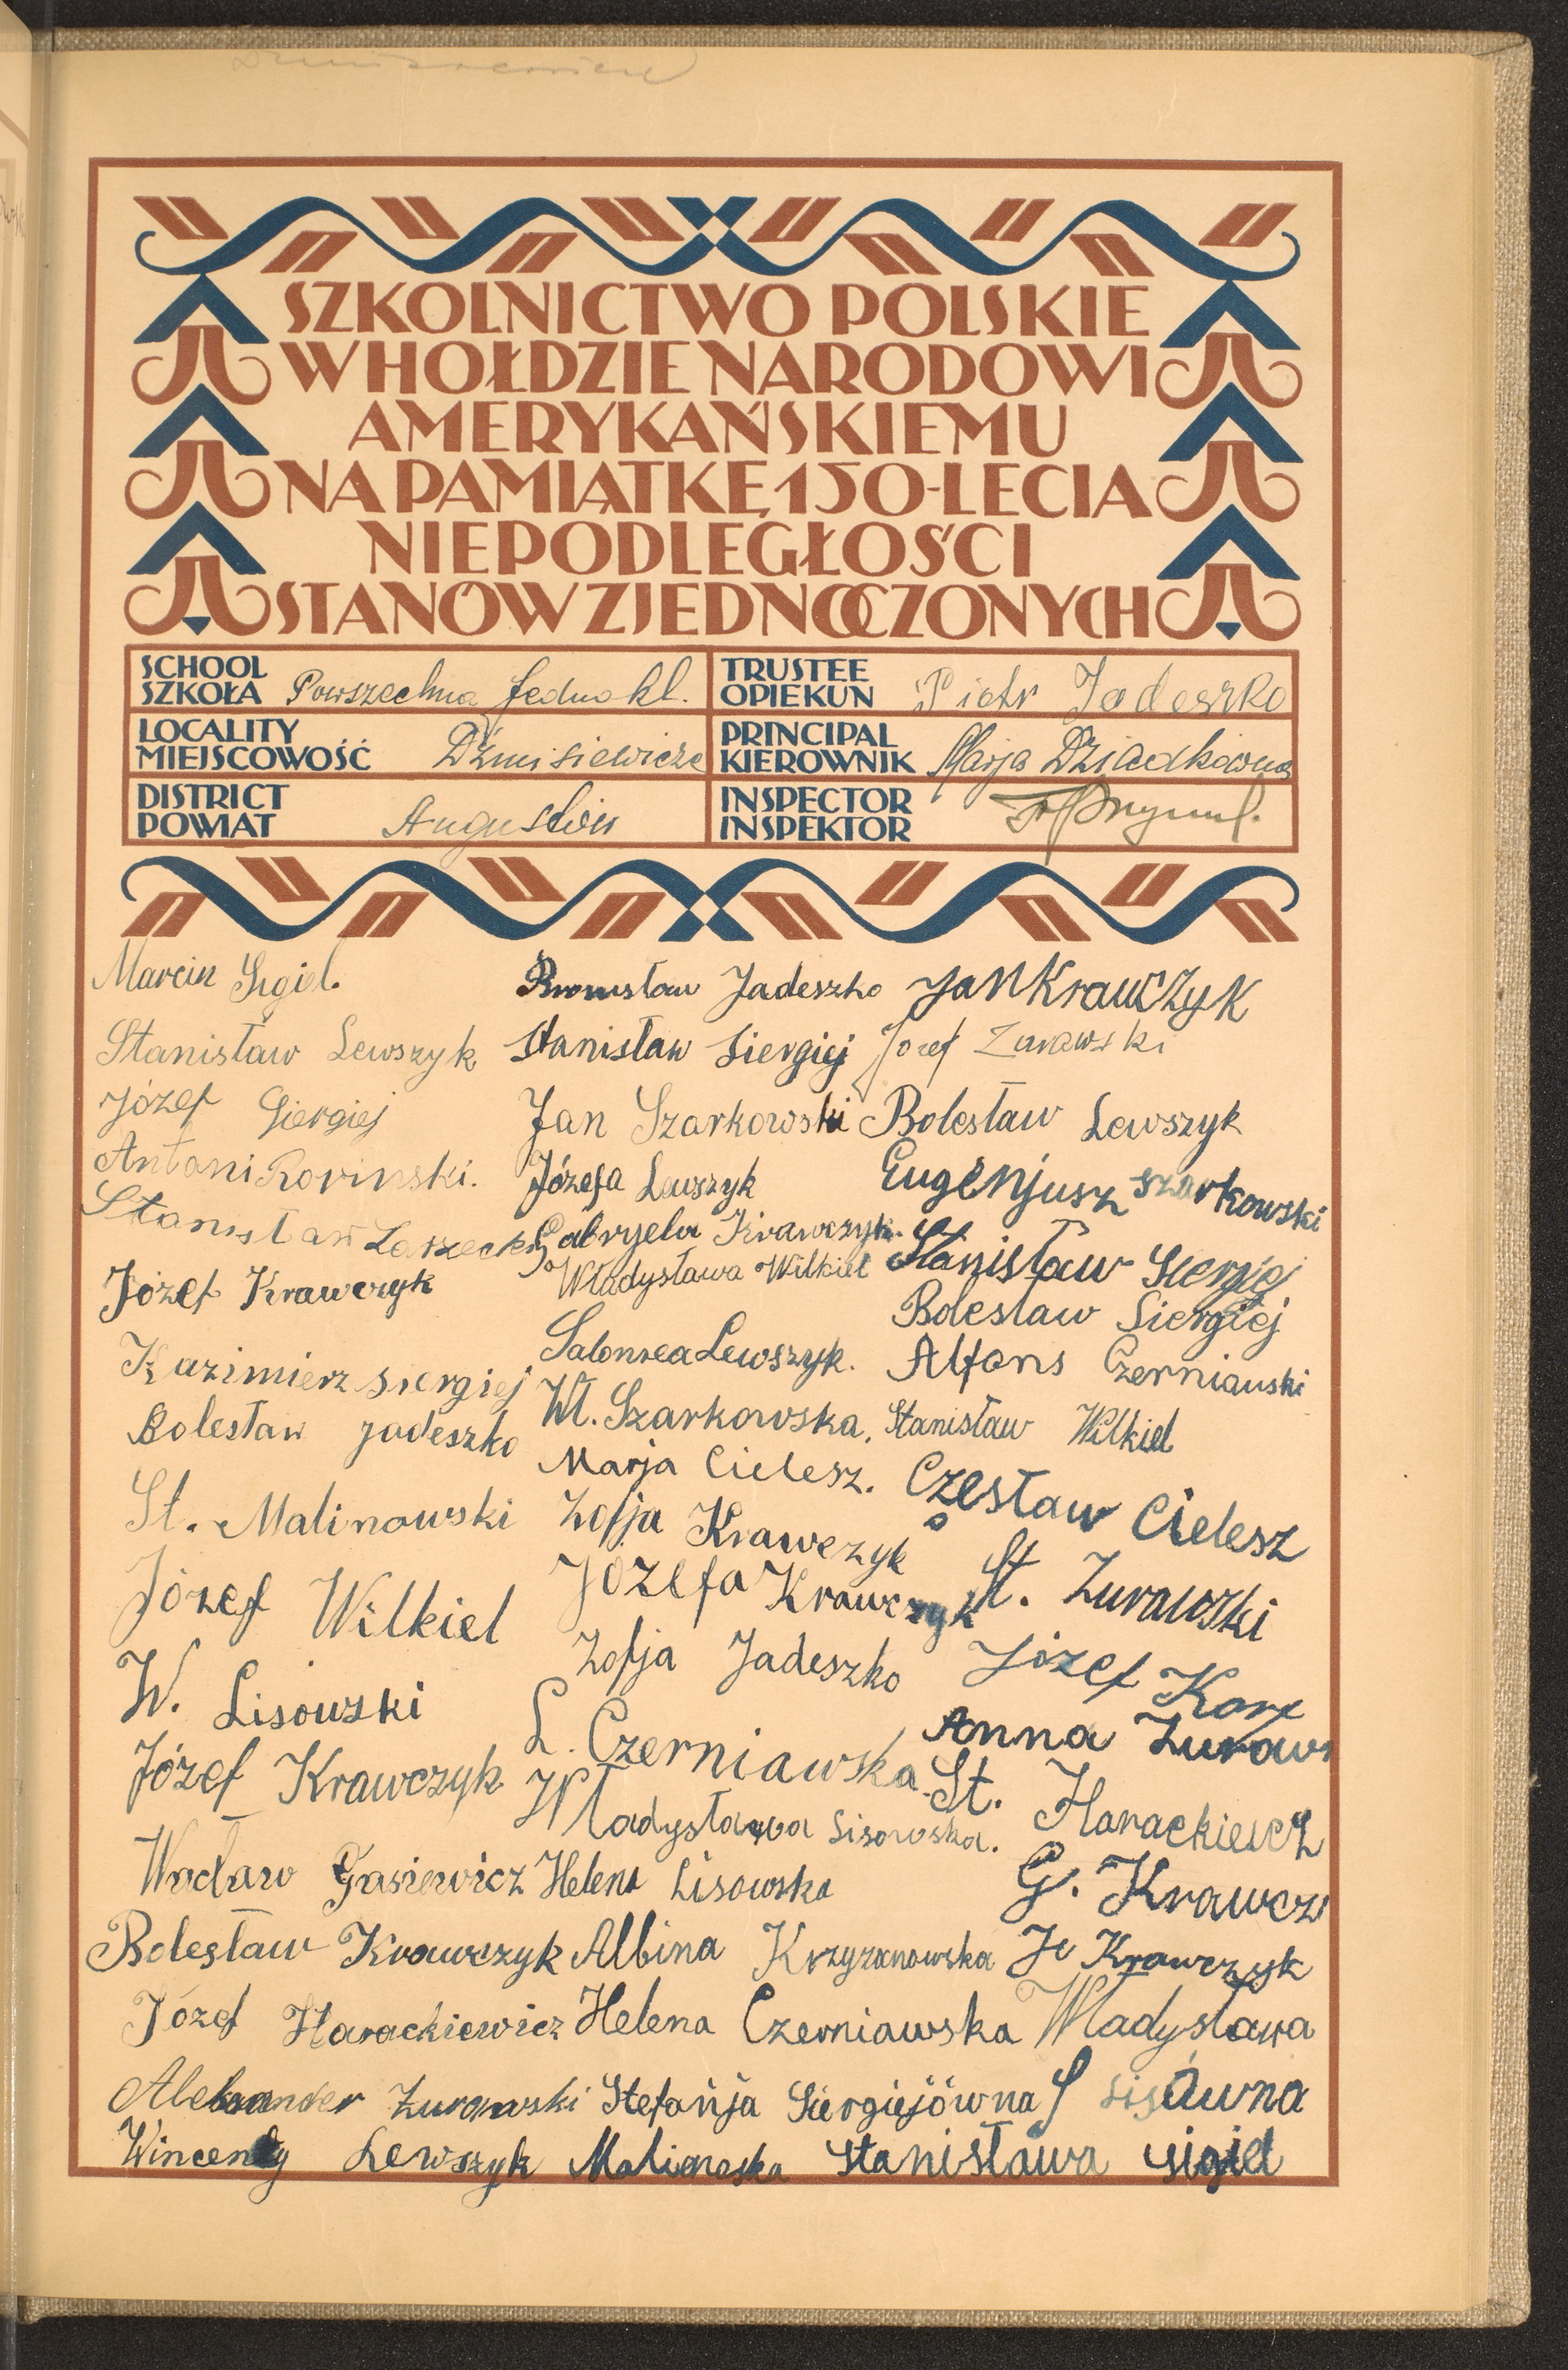 SZKOLNICTWO POLSKIE
W HOŁDZIE NARODOWI
AMERYKAŃSKIEMU
NA PAMIĄTKĘ 150-LECIA
NIEPODLEGŁOŚCI
STANÓW ZJEDNOCZONYCH
SCHOOL
SZKOŁA Powszechna Jedno kl.
TRUSTEE
OPIEKUN Piotr Jadeszko
LOCALITY
MIEJSCOWOŚĆ Dźmisiewicze
PRINCIPAL
KIEROWNIK Marja Dziadkówna
DISTRICT
POWIAT Augustów
INSPECTOR
INSPEKTOR
Marcin Sigiel.
Stanisław Lewszyk
Józef Siergiej
Antoni Rovinski.
Stanisław Laszecki
Józef Krawczyk
Kazimierz Siergiej
Bolesław Jadeszko
St. Malinowski
Józef Wilkiel
W. Lisowski
Józef Krawczyk
Wacław Gasiewicz
Bolesław Krawczyk
Józef Harackiewicz
Aleksander Zurawski
Wincenty Lewszyk
Bronisław Jadeszko
Stanisław Siergiej
Jan Szarkowski
Józefa Lewszyk
Gabryela Krawczyk.
Władysława Wilkiel
Salomea Lewszyk.
Wł. Szarkowska,
Marja Cielesz.
Zofja Krawczyk
Józefa Krawczyk
Zofja Jadeszko
L. Czerniawska
Władysława Lisowska.
Helena Lisowska
Albina Krzyzanowska
Helena Czerniawska
Stefańja Siergiejówna
Jan Krawczyk
Józef Zurawski
Bolesław Lewszyk
Eugenjusz Szarkowski
Stanisław Siergiej
Bolesław Siergiej
Alfons Czerniauski
Stanisław Wilkiel
Czesław Cielesz
St. Zurawski
Józef
Anna Zuraw
St. Harackiewcz
G. Krawcz
Krawczyk
Władysława
Stanisława Sigiel